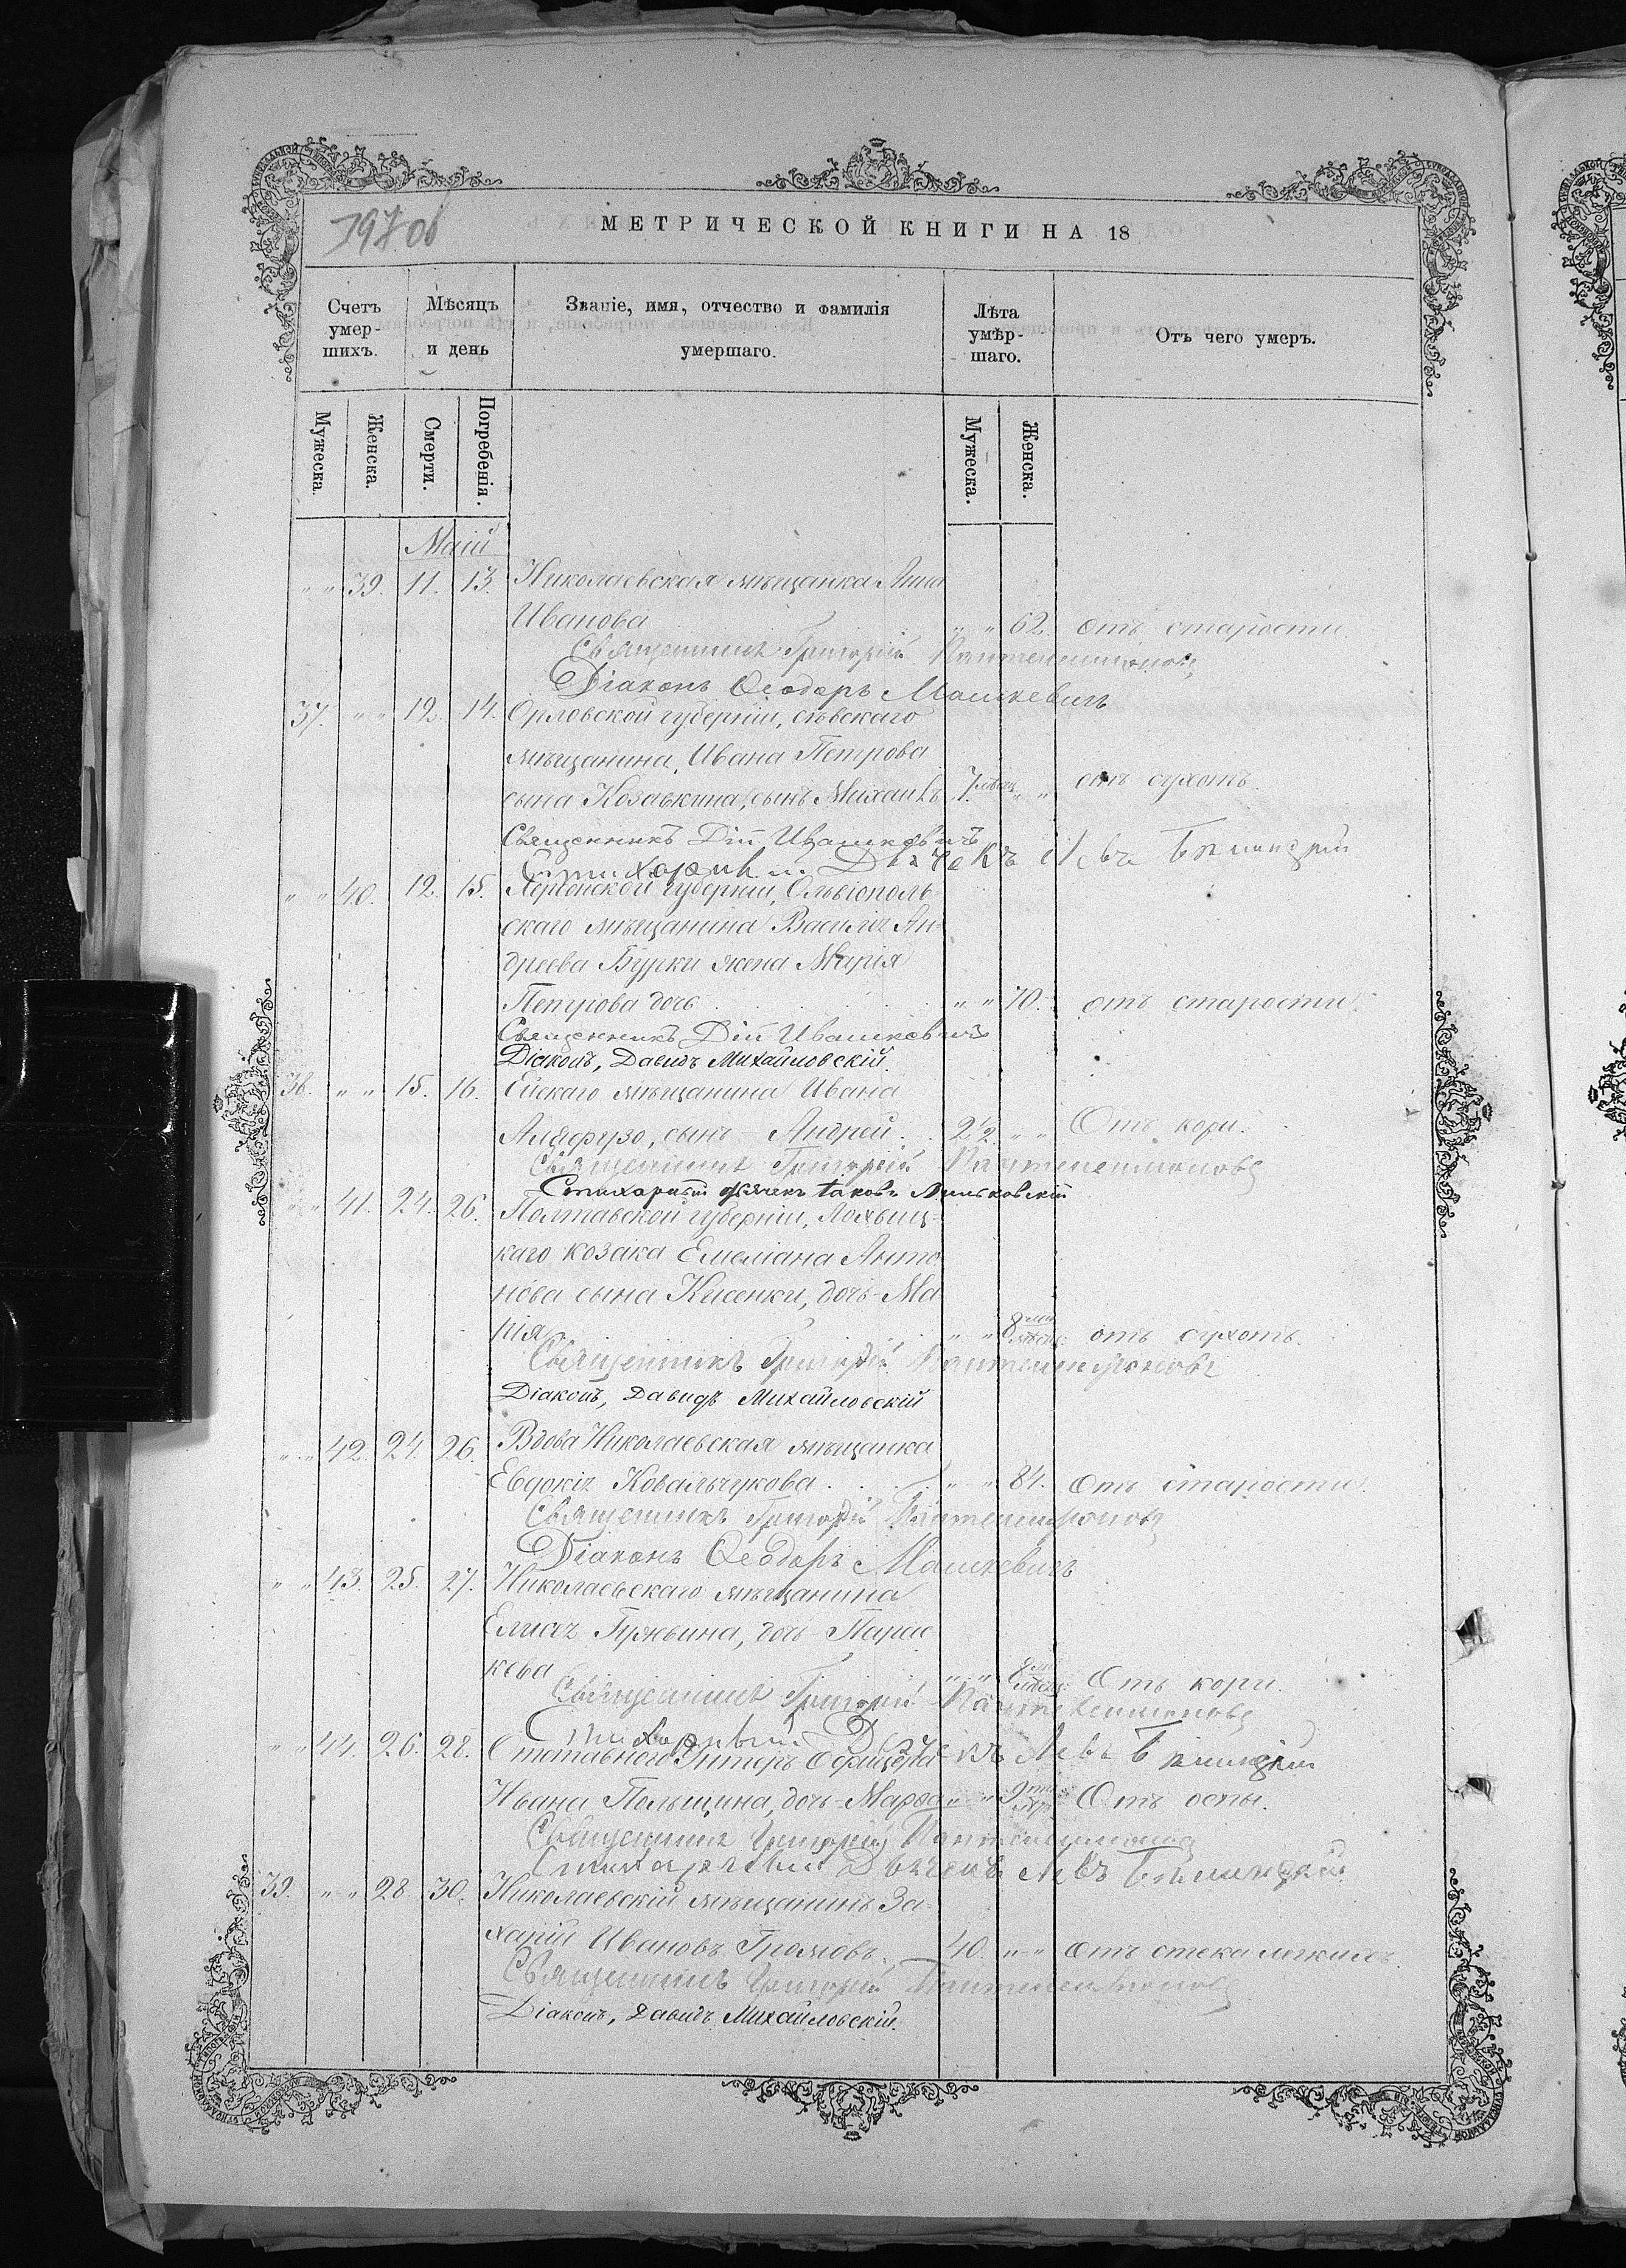 МЕТРИЧЕСКОЙ КНИГИ НА 18
Счетъ умер- шихъ. Мѣсяцъ и день Званіе, имя, отчество и фамилія умершаго. Лѣта умѣр- шаго. Отъ чего умеръ.
Мужеска. Женска. Смерти. Погребенія. Мужеска. Женска.
Маій
" " 39. 11. 13. Николаевская мѣщанка Анна
Иванова " " 62. отъ старости.
Священникъ Григорій Пантелеимоновъ
Діаконъ Ѳеодоръ Машкевичъ
37. " " 12. 14. Орловской губерніи, сѣвскаго
мѣщанина, Ивана Петрова
сына Козавкина, сынъ Михаилъ 7. мѣсяц. " " отъ сухотъ.
Священникъ Дій Ивашкевичъ
Стихарный Дьячекъ Левъ
" " 40. 12. 15. Херсонской губерніи, Ольвіополь-
скаго мѣщанина Василія Ан-
дреева Бурки жена Марія
Петрова дочь " " 70. отъ старости.
Священникъ Дій Ивашкевичъ
Діаконъ, Давидъ Михайловскій.
38. " " 15. 16. Ейскаго мѣщанина Ивана
сынъ Андрей. 2 1/2. " " Отъ кори.
Священникъ Григорій Пантелеимоновъ
Стихарный дьячекъ Іаковъ
" " 41. 24. 26. Полтавской губерніи, Лохвиц-
каго козака Емеліана Анто-
нова сына Кисенки, дочь Ма-
рія " " 8 мѣсяц. отъ сухотъ.
Священникъ Григорій Пантелеимоновъ
Діаконъ, Давидъ Михайловскій
" " 42. 24. 26. Вдова Николаевская мѣщанка
Евдокія Ковальчукова. " " 84. Отъ старости.
Священникъ Григорій Пантелеимоновъ
Діаконъ Ѳеодоръ Машкевичъ
" " 43. 25. 27. Николаевскаго мѣщанина
Елисея дочь Парас-
кева " " 8 мѣсяц. Отъ кори.
Священникъ Григорій Пантелеимоновъ
Стихарный Дьячекъ Левъ
" " 44. 26. 28. Отставного Унтеръ Офицера
Ивана Польщина, дочь Марѳа " " 9 Отъ оспы.
Священникъ Григорій Пантелеимоновъ
Стихарный Дьячекъ Левъ
39. " " 28. 30. Николаевскій мѣщанинъ За-
харій Ивановъ Громовъ. 40. " " отъ отека легкихъ.
Священникъ Григорій Пантелеимоновъ
Діаконъ, Давидъ Михайловскій.